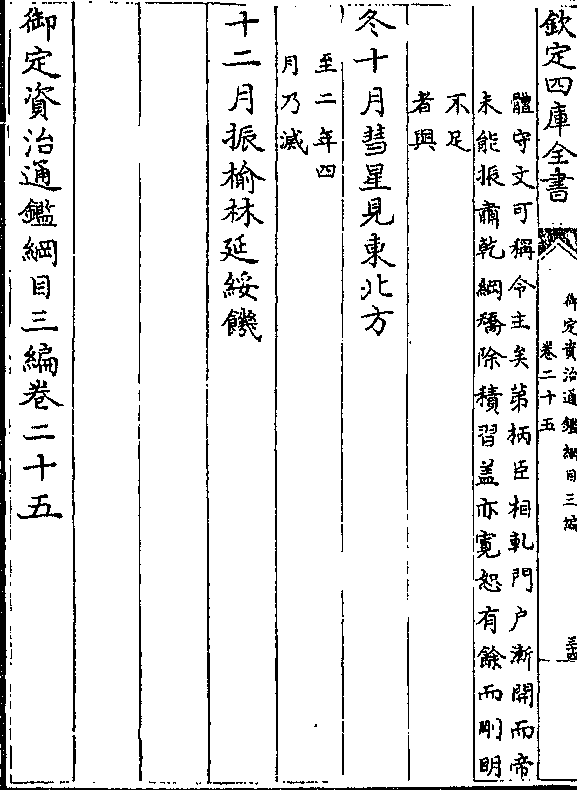 欽定四庫全書
御定資治通鑑綱目三編
卷二十五
體守文可稱令主矣第柄臣相軋門户漸開而帝
未能振肅乾綱矯除積習盖亦寛恕有餘而剛明
不足
者與
冬十月彗星見東北方
至二年四
月乃滅
十二月振榆林延綏饑
御定資治通鑑綱目三編卷二十五